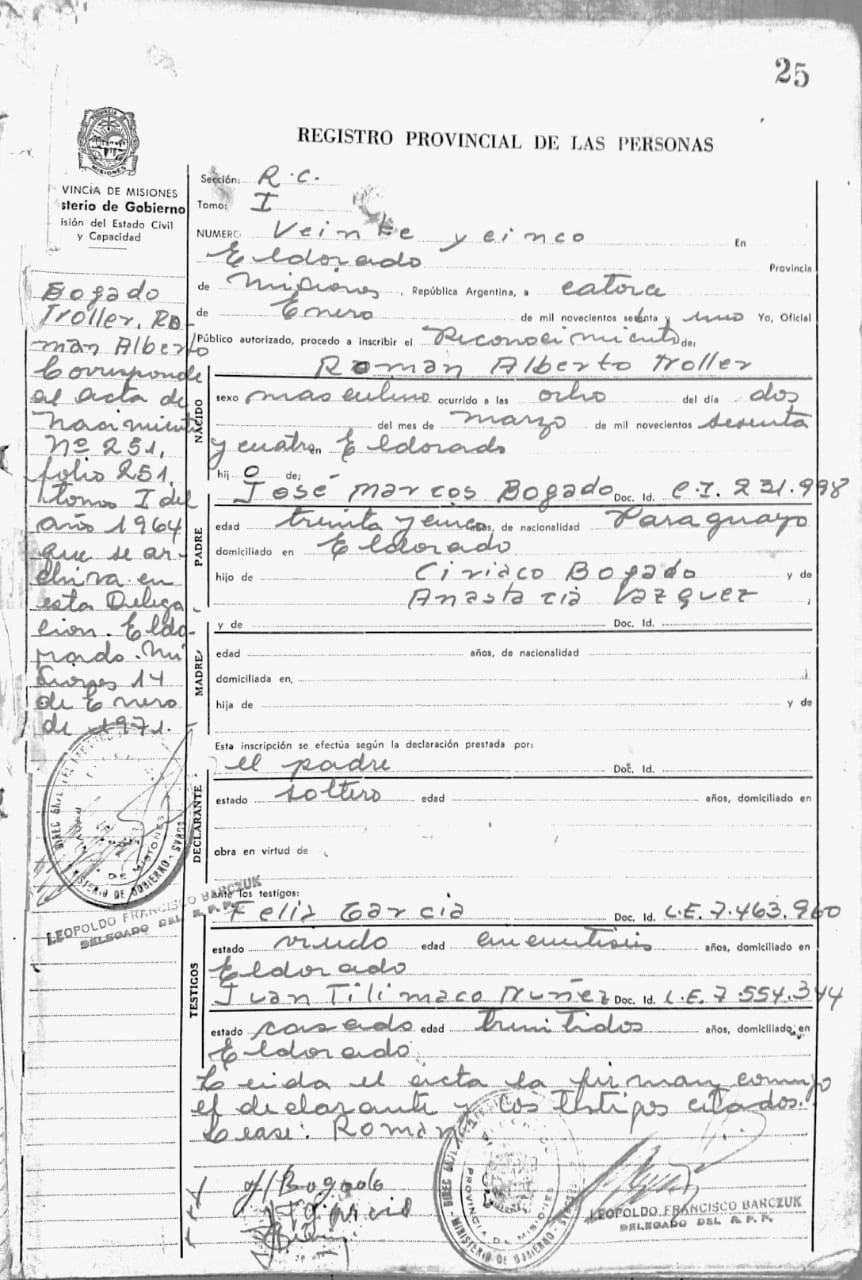 25
REGISTRO PROVINCIAL DE LAS PERSONAS
PROVINCIA DE
MISIONES
VINCIA DE MISIONES
sterio de Gobierno
isión del Estado Civil
y Capacidad
Bogado
Troller, Ro-
man Alberto
Corresponde
al acta de
Nacimiento
Nº 251,
folio 251,
tomo I del
año 1964
que se ar-
chiva en
esta Delega
cion. Eldo-
rado. Mi
siones 14
de Enero
de 1971.
DIREC GRAL
MINISTERIO DE GOBIERNO
DE MISIONES
LEOPOLDO FRANCISCO BARCZUK
DELEGADO DEL R.P.P.
Sección: R.C.
Tomo: I
NUMERO Veinte y cinco En
Eldorado Provincia
de Misiones, República Argentina, a catorce
de Enero de mil novecientos setenta y uno Yo, Oficial
Público autorizado, procedo a inscribir el Reconocimiento de:
NACIDO
Roman Alberto Troller
sexo masculino ocurrido a las ocho del día dos
del mes de marzo de mil novecientos sesenta
y cuatro en Eldorado
hij o de:
PADRE
José Marcos Bogado Doc. Id. C.I. 231.998
edad treinta y cinco años, de nacionalidad Paraguayo
domiciliado en Eldorado
hijo de Ciriaco Bogado y de
Anastacia Vazquez
MADRE
y de Doc. Id.
edad años, de nacionalidad
domiciliada en,
hija de y de
Esta inscripción se efectúa según la declaración prestada por:
DECLARANTE
el padre Doc. Id.
estado soltero edad años, domiciliado en
obra en virtud de
Ante los testigos:
TESTIGOS
Felix Garcia Doc. Id. L.E. 7.463.960
estado viudo edad años, domiciliado en
Eldorado
Juan Tilimaco Nuñez Doc. Id. L.E. 7.554.344
estado casado edad treintidos años, domiciliado en
Eldorado
Leida el acta la firman conmigo
el declarante y los testigos citados.
Lease: Roman
Bogado
DIREC GRAL
PROVINCIA DE MISIONES
MINISTERIO DE GOBIERNO
LEOPOLDO FRANCISCO BARCZUK
DELEGADO DEL R.P.P.